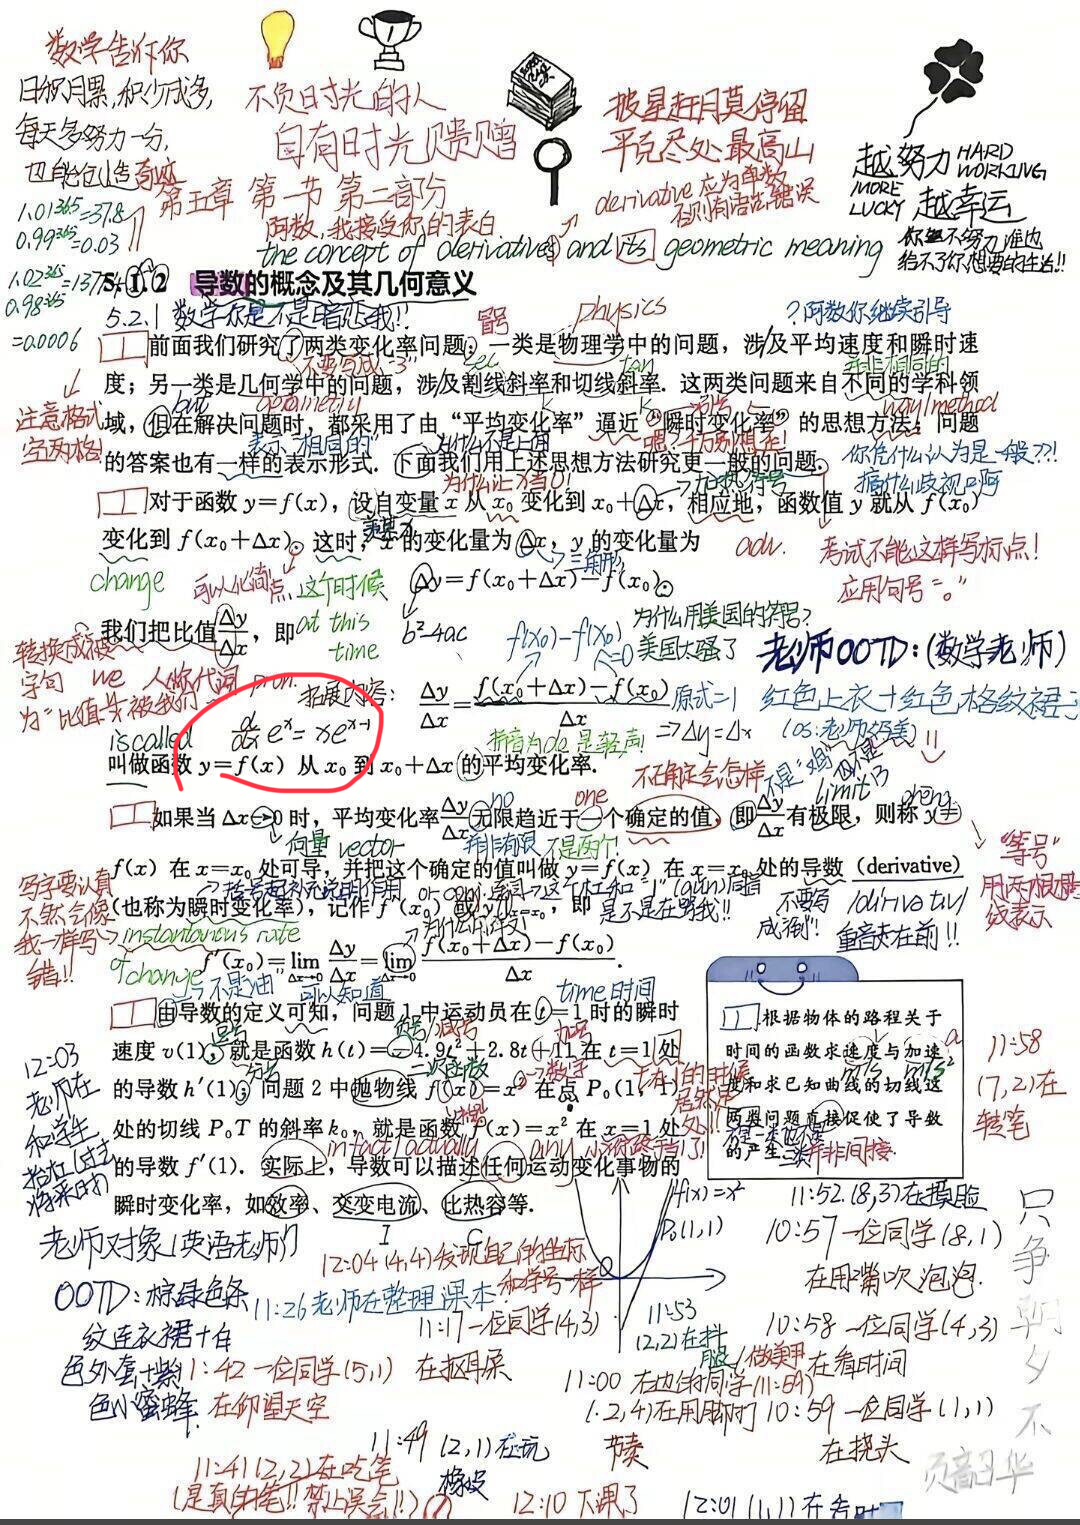 数学告诉你
日积月累,积少成多,
每天多努力一分,
也能创造奇迹
1.01³⁶⁵=37.8
0.99³⁶⁵=0.03
1.02³⁶⁵=1377.4
0.98³⁶⁵
=0.0006
不负时光的人
自有时光赐赠
第五章 第一节 第二部分
阿数,我接受你的表白
披星赶月莫停留
平芜尽处最高山
derivative应为单数
否则有语法错误
越努力 HARD WORKING
MORE LUCKY 越幸运
你不努力谁也
给不了你想要的生活!!
the concept of derivatives and its geometric meaning
5.1.2 导数的概念及其几何意义
5.2.1 数学你是不是暗恋我!!
冒号
physics
?阿数你继续引导
前面我们研究了两类变化率问题:一类是物理学中的问题,涉及平均速度和瞬时速
不要写成“3”
sec
tan
并非相同的
度;另一类是几何学中的问题,涉及割线斜率和切线斜率.这两类问题来自不同的学科领
注意格式
空两格!
but
geometry
way/method
域,但在解决问题时,都采用了由“平均变化率”逼近“瞬时变化率”的思想方法;问题
表示“相同的”
为什么不是上面
的答案也有一样的表示形式.下面我们用上述思想方法研究更一般的问题.
你凭什么认为是一般??!
搞什么歧视啊
为什么让x当0!
对于函数 y=f(x),设自变量 x 从 x₀ 变化到 x₀+Δx,相应地,函数值 y 就从 f(x₀)
变化到 f(x₀+Δx).这时,x 的变化量为 Δx,y 的变化量为
adv.
考试不能这样写标点!
应用句号“。”
change
可以化简点
这个时候
at this
time
三角形
Δy=f(x₀+Δx)−f(x₀).
b²-4ac
f(x₀)-f(x₀)
=0
为什么用美国的符号?
美国太骚了
我们把比值Δy/Δx,即
转换成被
字句
为“比值…被我们…”
we 人称代词
pron.
is called
拓展内容:
d/dx eˣ=xeˣ⁻¹
Δy/Δx=(f(x₀+Δx)−f(x₀))/Δx
原式=1
⇒Δy=Δx
拼音为de 是轻声!
老师OOTD:(数学老师)
红色上衣+红色格纹裙子
(os:老师好美)
叫做函数 y=f(x) 从 x₀ 到 x₀+Δx 的平均变化率.
不确定会怎样
limit
no
one
如果当 Δx→0 时,平均变化率Δy/Δx无限趋近于一个确定的值,即Δy/Δx有极限,则称 y=
向量 vector
并非有限
不是两个!
“等号”
用两根横
线表示
f(x) 在 x=x₀ 处可导,并把这个确定的值叫做 y=f(x) 在 x=x₀ 处的导数 (derivative)
写字要认真
不然会像
我一样写
错!!
括号起补充说明作用
or conj.连词
(也称为瞬时变化率),记作 f′(x₀) 或 y′|x=x₀,即
这个杠和“1”(gun)同音
是不是在骂我!!
不要写
成“倒”!
重音在前!!
instantaneous rate
of change
f′(x₀)=lim Δx→0 Δy/Δx=lim Δx→0 (f(x₀+Δx)−f(x₀))/Δx.
不是“油”
可以知道
time时间
由导数的定义可知,问题 1 中运动员在 t=1 时的瞬时
速度 v(1),就是函数 h(t)=−4.9t²+2.8t+11 在 t=1 处
减号
加号
逗号
分号
二次函数
的导数 h′(1);问题 2 中抛物线 f(x)=x² 在点 P₀(1,1)
处的切线 P₀T 的斜率 k₀,就是函数 f(x)=x² 在 x=1 处
in fact/actually
any
的导数 f′(1).实际上,导数可以描述任何运动变化事物的
瞬时变化率,如效率、交变电流、比热容等.
I
C
根据物体的路程关于
时间的函数求速度与加速
m/s
m/s²
a
度和求已知曲线的切线这
两类问题直接促使了导数
的产生.
并非间接
11:58
(7,2)在
转笔
12:03
老师在
和学生
抬杠(过去
将来时)
f(x)=x²
P₀(1,1)
老师对象(英语老师)
OOTD:棕绿色条
纹连衣裙+白
色外套+紫
色小蜜蜂
12:04(4,4)发现自己的坐标
和学号一样
11:26老师在整理课本
11:17一位同学(4,3)
在抠耳屎
11:42一位同学(5,1)
在仰望天空
11:53
(2,2)在抖
腿
11:52(8,3)在摸脸
10:57一位同学(8,1)
在用嘴吹泡泡
10:58一位同学(4,3)
在看时间
10:59一位同学(1,1)
在挠头
11:49
(2,1)在玩
橡皮
11:41(2,2)在吃笔
(是真的笔!!禁止误会!!)
12:10下课了
只争朝夕不
负韶华